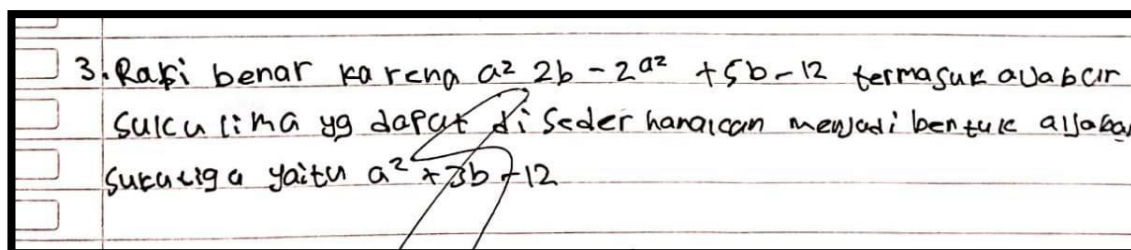 3. Rafi benar karena a² 2b - 2a² + 5b - 12 termasuk aljabar
suku lima yg dapat di sederhanakan menjadi bentuk aljabar
suku tiga yaitu a² + 3b - 12